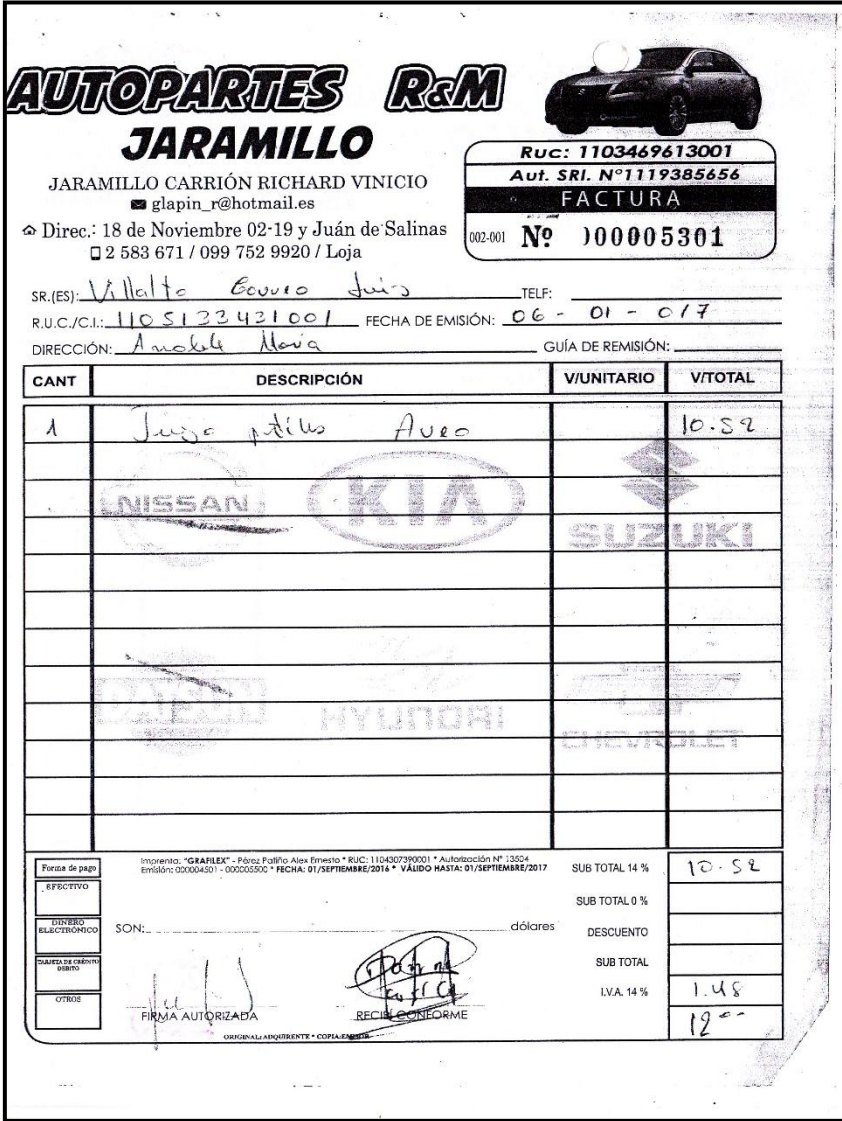 AUTOPARTES R&M
JARAMILLO
JARAMILLO CARRIÓN RICHARD VINICIO
glapin_r@hotmail.es
Direc.: 18 de Noviembre 02-19 y Juán de Salinas
2 583 671 / 099 752 9920 / Loja
Ruc: 1103469613001
Aut. SRI. N°1119385656
FACTURA
002-001 Nº 000005301
SR.(ES): Villalta Luis TELF:
R.U.C./C.I.: 1105133431001 FECHA DE EMISIÓN: 06 - 01 - 017
DIRECCIÓN: María GUÍA DE REMISIÓN:
CANT DESCRIPCIÓN V/UNITARIO V/TOTAL
1 Juego Aveo 10.52
NISSAN KIA SUZUKI
DATSUN HYUNDAI CHEVROLET
Forma de pago
EFECTIVO
DINERO ELECTRÓNICO
TARJETA DE CRÉDITO DEBITO
OTROS
Imprenta: "GRAFILEX" - Pérez Patiño Alex Ernesto * RUC: 1104307390001 * Autorización Nº 13504
Emisión: 000004501 - 000005500 * FECHA: 01/SEPTIEMBRE/2016 * VÁLIDO HASTA: 01/SEPTIEMBRE/2017
SON: dólares
FIRMA AUTORIZADA RECIBÍ CONFORME
ORIGINAL: ADQUIRENTE * COPIA: EMISOR
SUB TOTAL 14 % 10.52
SUB TOTAL 0 %
DESCUENTO
SUB TOTAL
I.V.A. 14 % 1.48
12 00